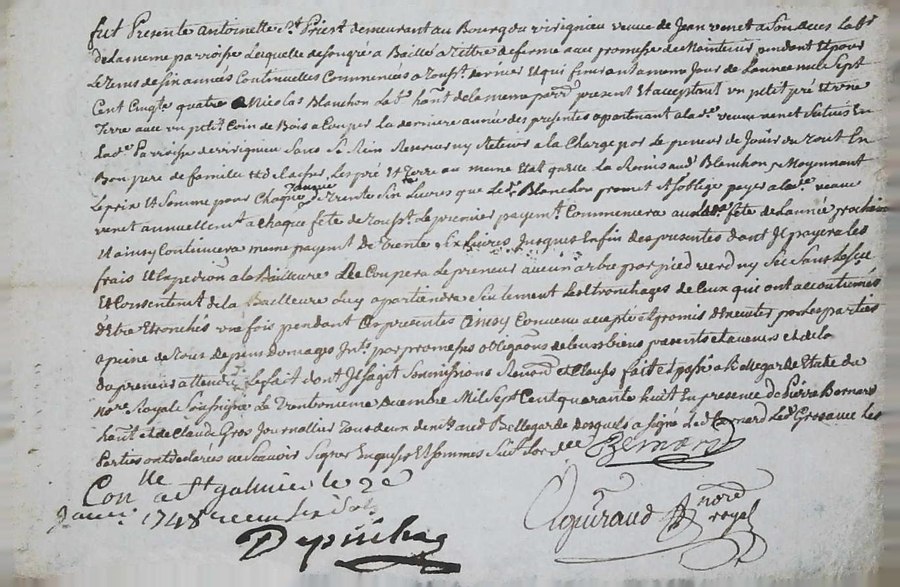 fut Presente Antoinette St Priest demeurant au Bourg du virignieu veuve de Jean venet a son deces Labr
de la meme parroisse Lequelle de son gré a Baillé a Tittre de ferme avec promesse de Maintenir pendant Et pour
Le tems de six années Continuelles Commencés a Touss.t dernier Et qui finiront a meme Jour de Lannee mil Sept
Cent Cinqte quatre a Nicolas Blanchon Labr hant de la meme parr present Et acceptant un petit pré Et une
Terre avec un petit Coin de Bois a Couper La derniere année des presentes apartenant a lad veuve venet Situés En
Lad parroisse de virignieu Sans En Rien Reserver ny Retenir a la Charge par Le preneur de Joüir du tout En
Bon pere de famille Et de Laisser Les pré Et Terre au meme Etat Moyennant
Le prix Et Somme pour Chaque année de Trente Six Livres que Led Blanchon promet Et soblige payer a lad veuve
venet annuellemt a Chaque fête de Touss.t Le premier payemt Commencera aud fête de Lannée prochaine
Et ainsy Continuera meme payemt de trente Six Livres Jusques Enfin des presentes dont Il payera les
frais Et Expedion a la Bailleure Ne Coupera Le preneur aucun arbre par pied verd ny Sec Sans Le Sceu
Et Consentemt de la Bailleure Luy apartiendra Seulement Les Etronchages de Ceux qui ont accoutumés
d'Etre Etronchés une fois pendant Les presentes Ainsy Convenu accepté Et promis Observer par Les parties
a peine de tous depens domages Jnts par promesses obligaons de Leurs biens presents et avenirs et de la
du preneur attendu Le fait dont Il Sagit Soumissions Renonons et Clauses fait Et passé a Bellegarde Etude du
Nore Royale Soussigné Le Trentunieme Decembre Mil Sept Cent quarante huit En presence de Pierre Bernard
hant et de Claude Gros Journallier Tous deux demts aud Bellegarde desquels a signé Led Bernard Led Gros avec les
Parties ont declarés ne Scavoir Signer Enquis Et Sommés Suivt Lor
Bernard
Conlle a St galmier le 2e
Janvr 1748 recu
Depuichas
nore
royal